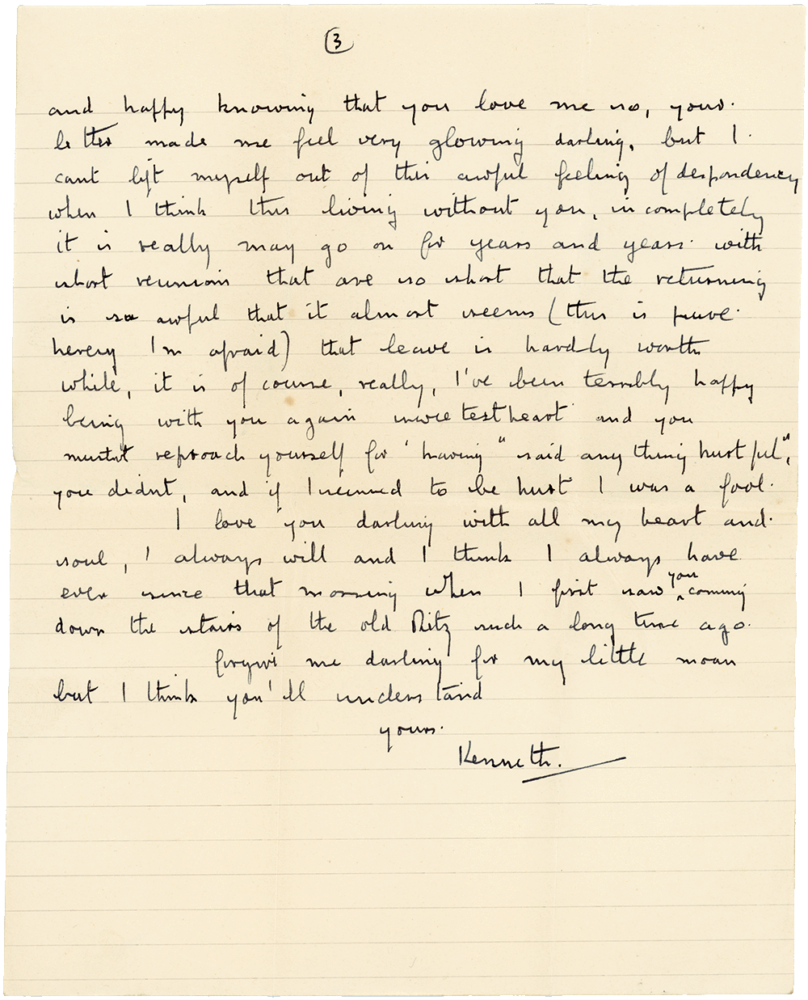 3
and happy knowing that you love me so, your
letter made me feel very glowing darling, but I
cant lift myself out of this awful feeling of despondency
when I think this living without you, incompletely
it is really may go on for years and years with
short reunions that are so short that the returning
is so awful that it almost seems (this is pure
heresy I'm afraid) that leave is hardly worth
while, it is of course, really, I've been terribly happy
being with you again sweetestheart and you
mustnt reproach yourself for 'having "said any thing hurtful",
you didnt, and if I seemed to be hurt I was a fool.
I love you darling with all my heart and
soul, I always will and I think I always have
ever since that morning when I first saw you coming
down the stairs of the old Ritz such a long time ago.
forgive me darling for my little moan
but I think you'll understand
yours.
Kenneth.